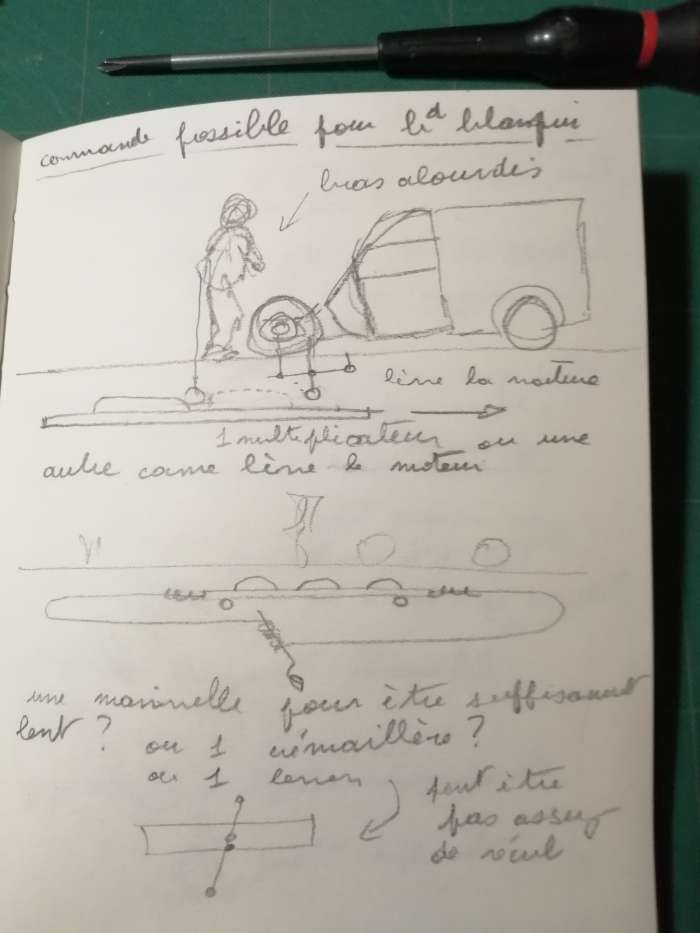 commande possible pour bd blanqui
bras alourdis
lève la voiture
1 multiplicateur ou une
autre came lève le moteur
une manivelle pour être suffisamt
lent ? ou 1 crémaillère ?
ou 1 levier
peut être
pas assez
de recul